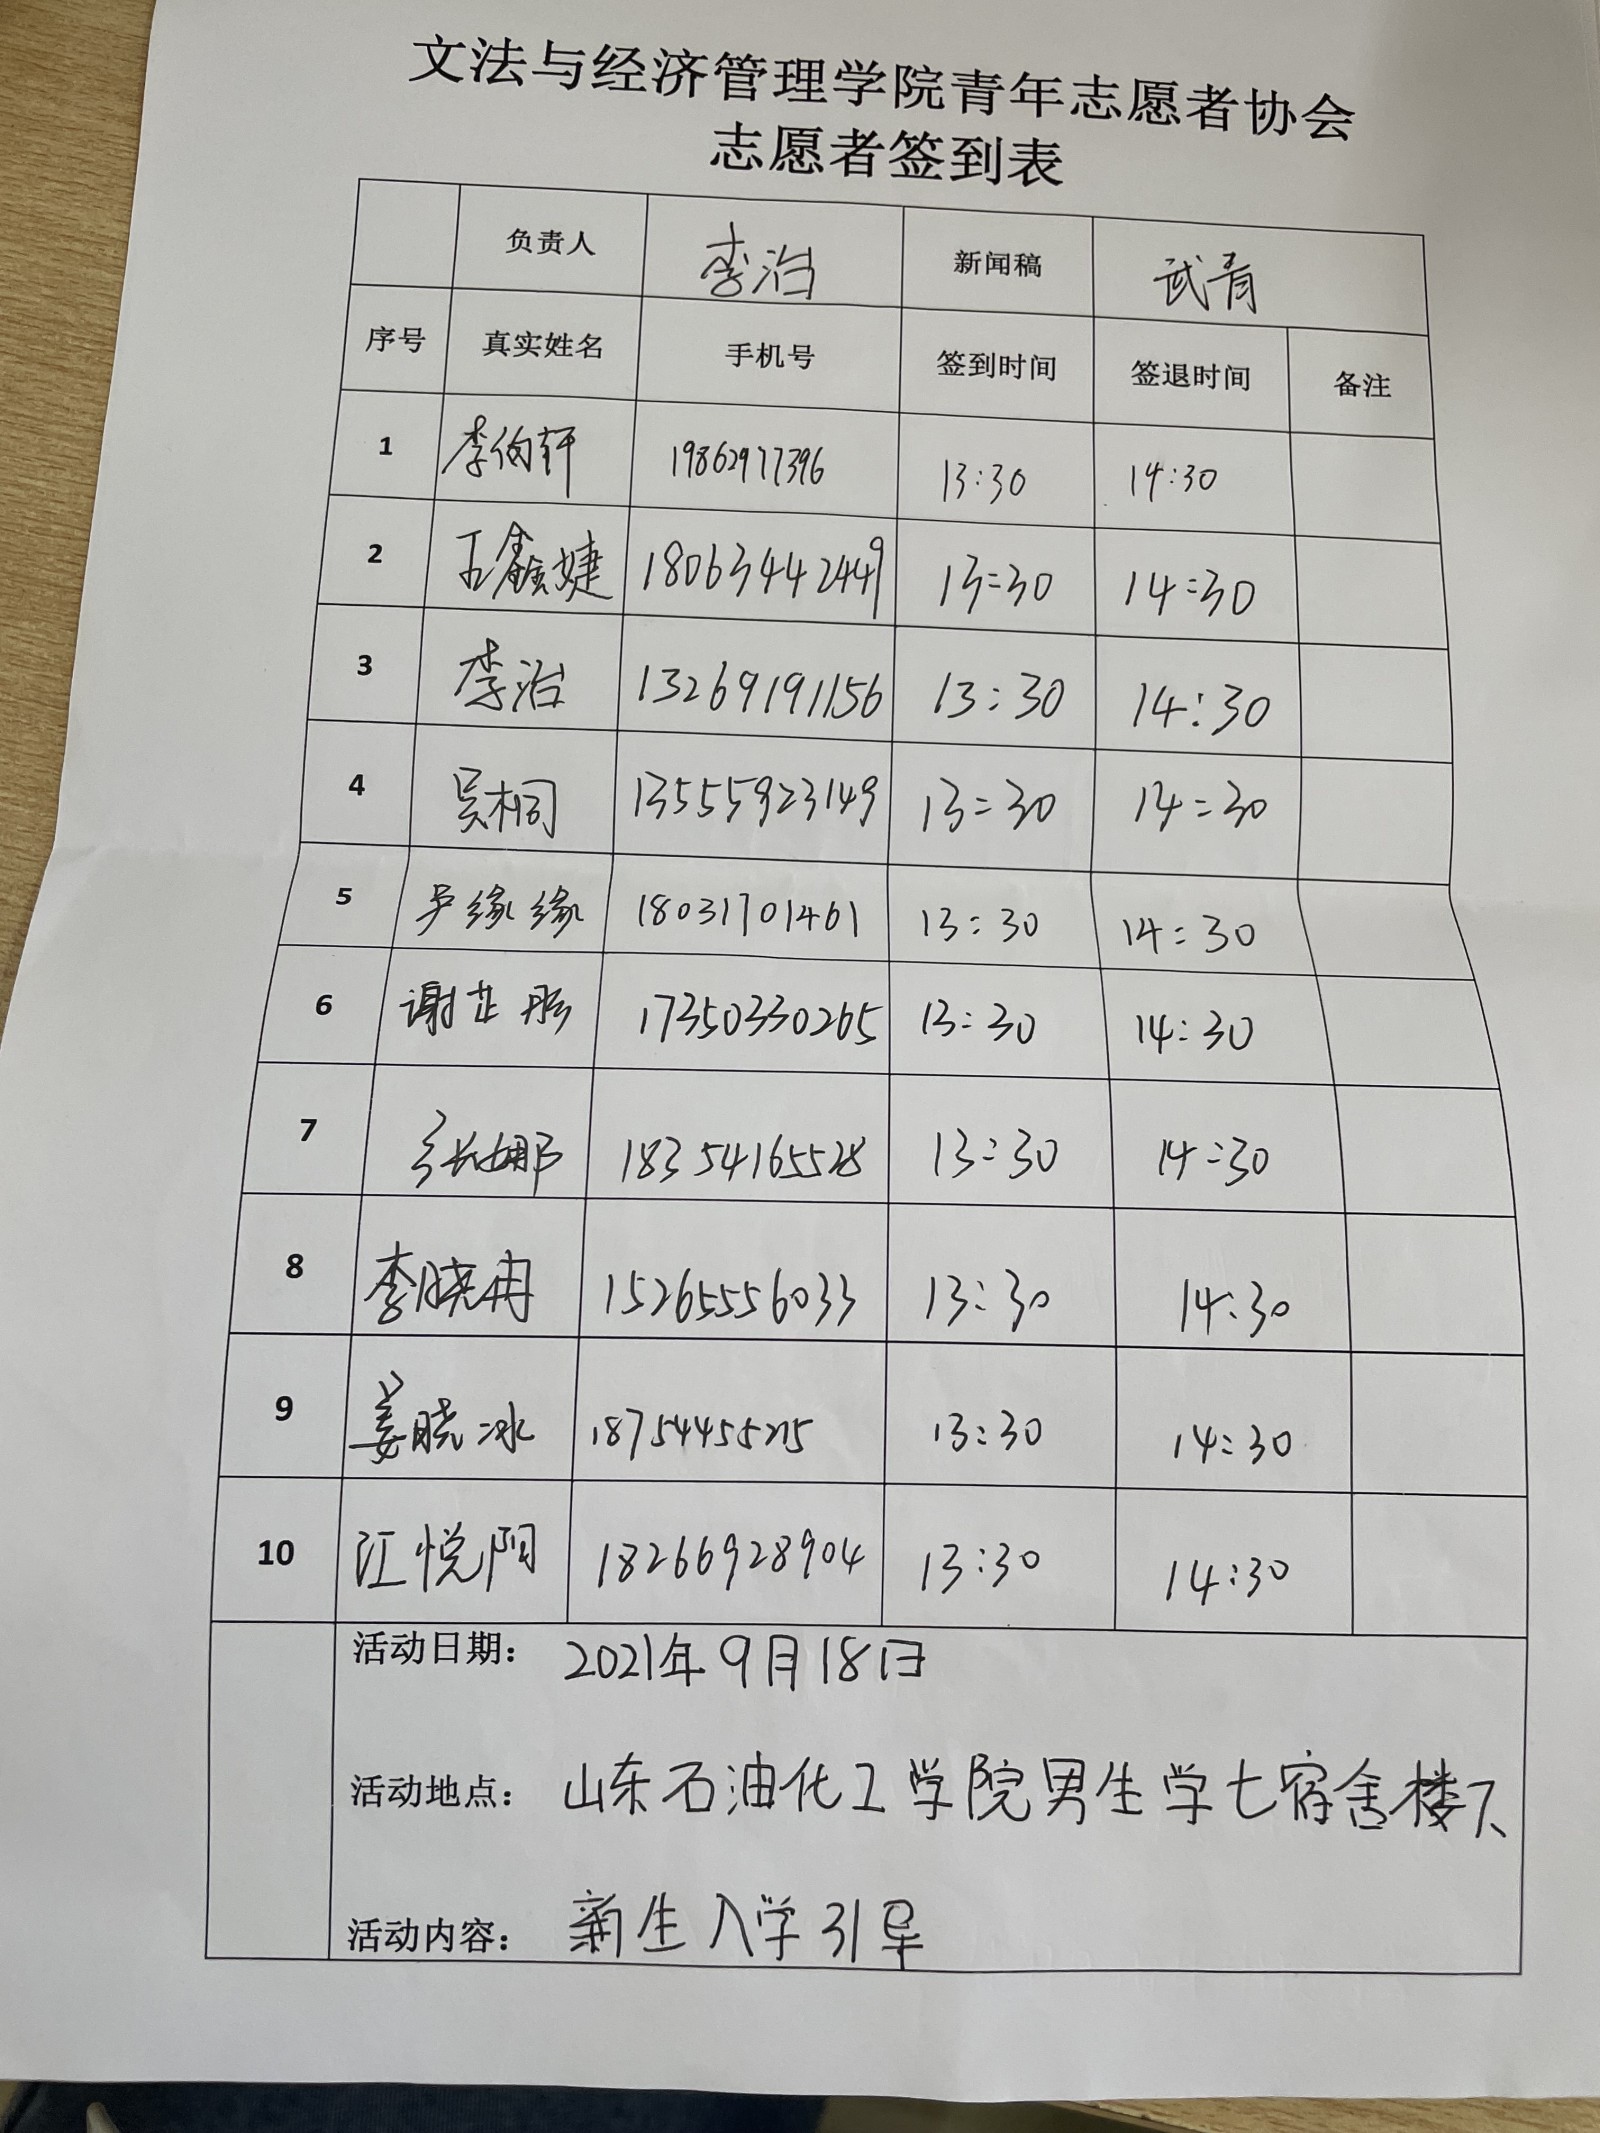 文法与经济管理学院青年志愿者协会
志愿者签到表
负责人 李治 新闻稿 武青
序号 真实姓名 手机号 签到时间 签退时间 备注
1 李伯轩 19862977396 13:30 14:30
2 王鑫婕 18063442449 13:30 14:30
3 李治 13269191156 13:30 14:30
4 吴桐 13555923149 13:30 14:30
5 尹缘缘 18031701461 13:30 14:30
6 谢芷彤 17350330265 13:30 14:30
7 18354165528 13:30 14:30
8 李晓冉 15265556033 13:30 14:30
9 姜晓冰 13:30 14:30
10 江悦阳 18266928904 13:30 14:30
活动日期： 2021年9月18日
活动地点： 山东石油化工学院男生学七宿舍楼下
活动内容： 新生入学引导